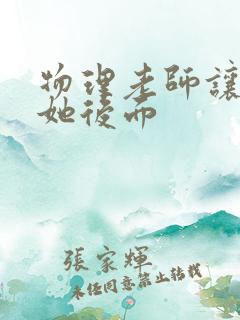 物理老師讓
她後面
張家輝
未任同意禁止轉載